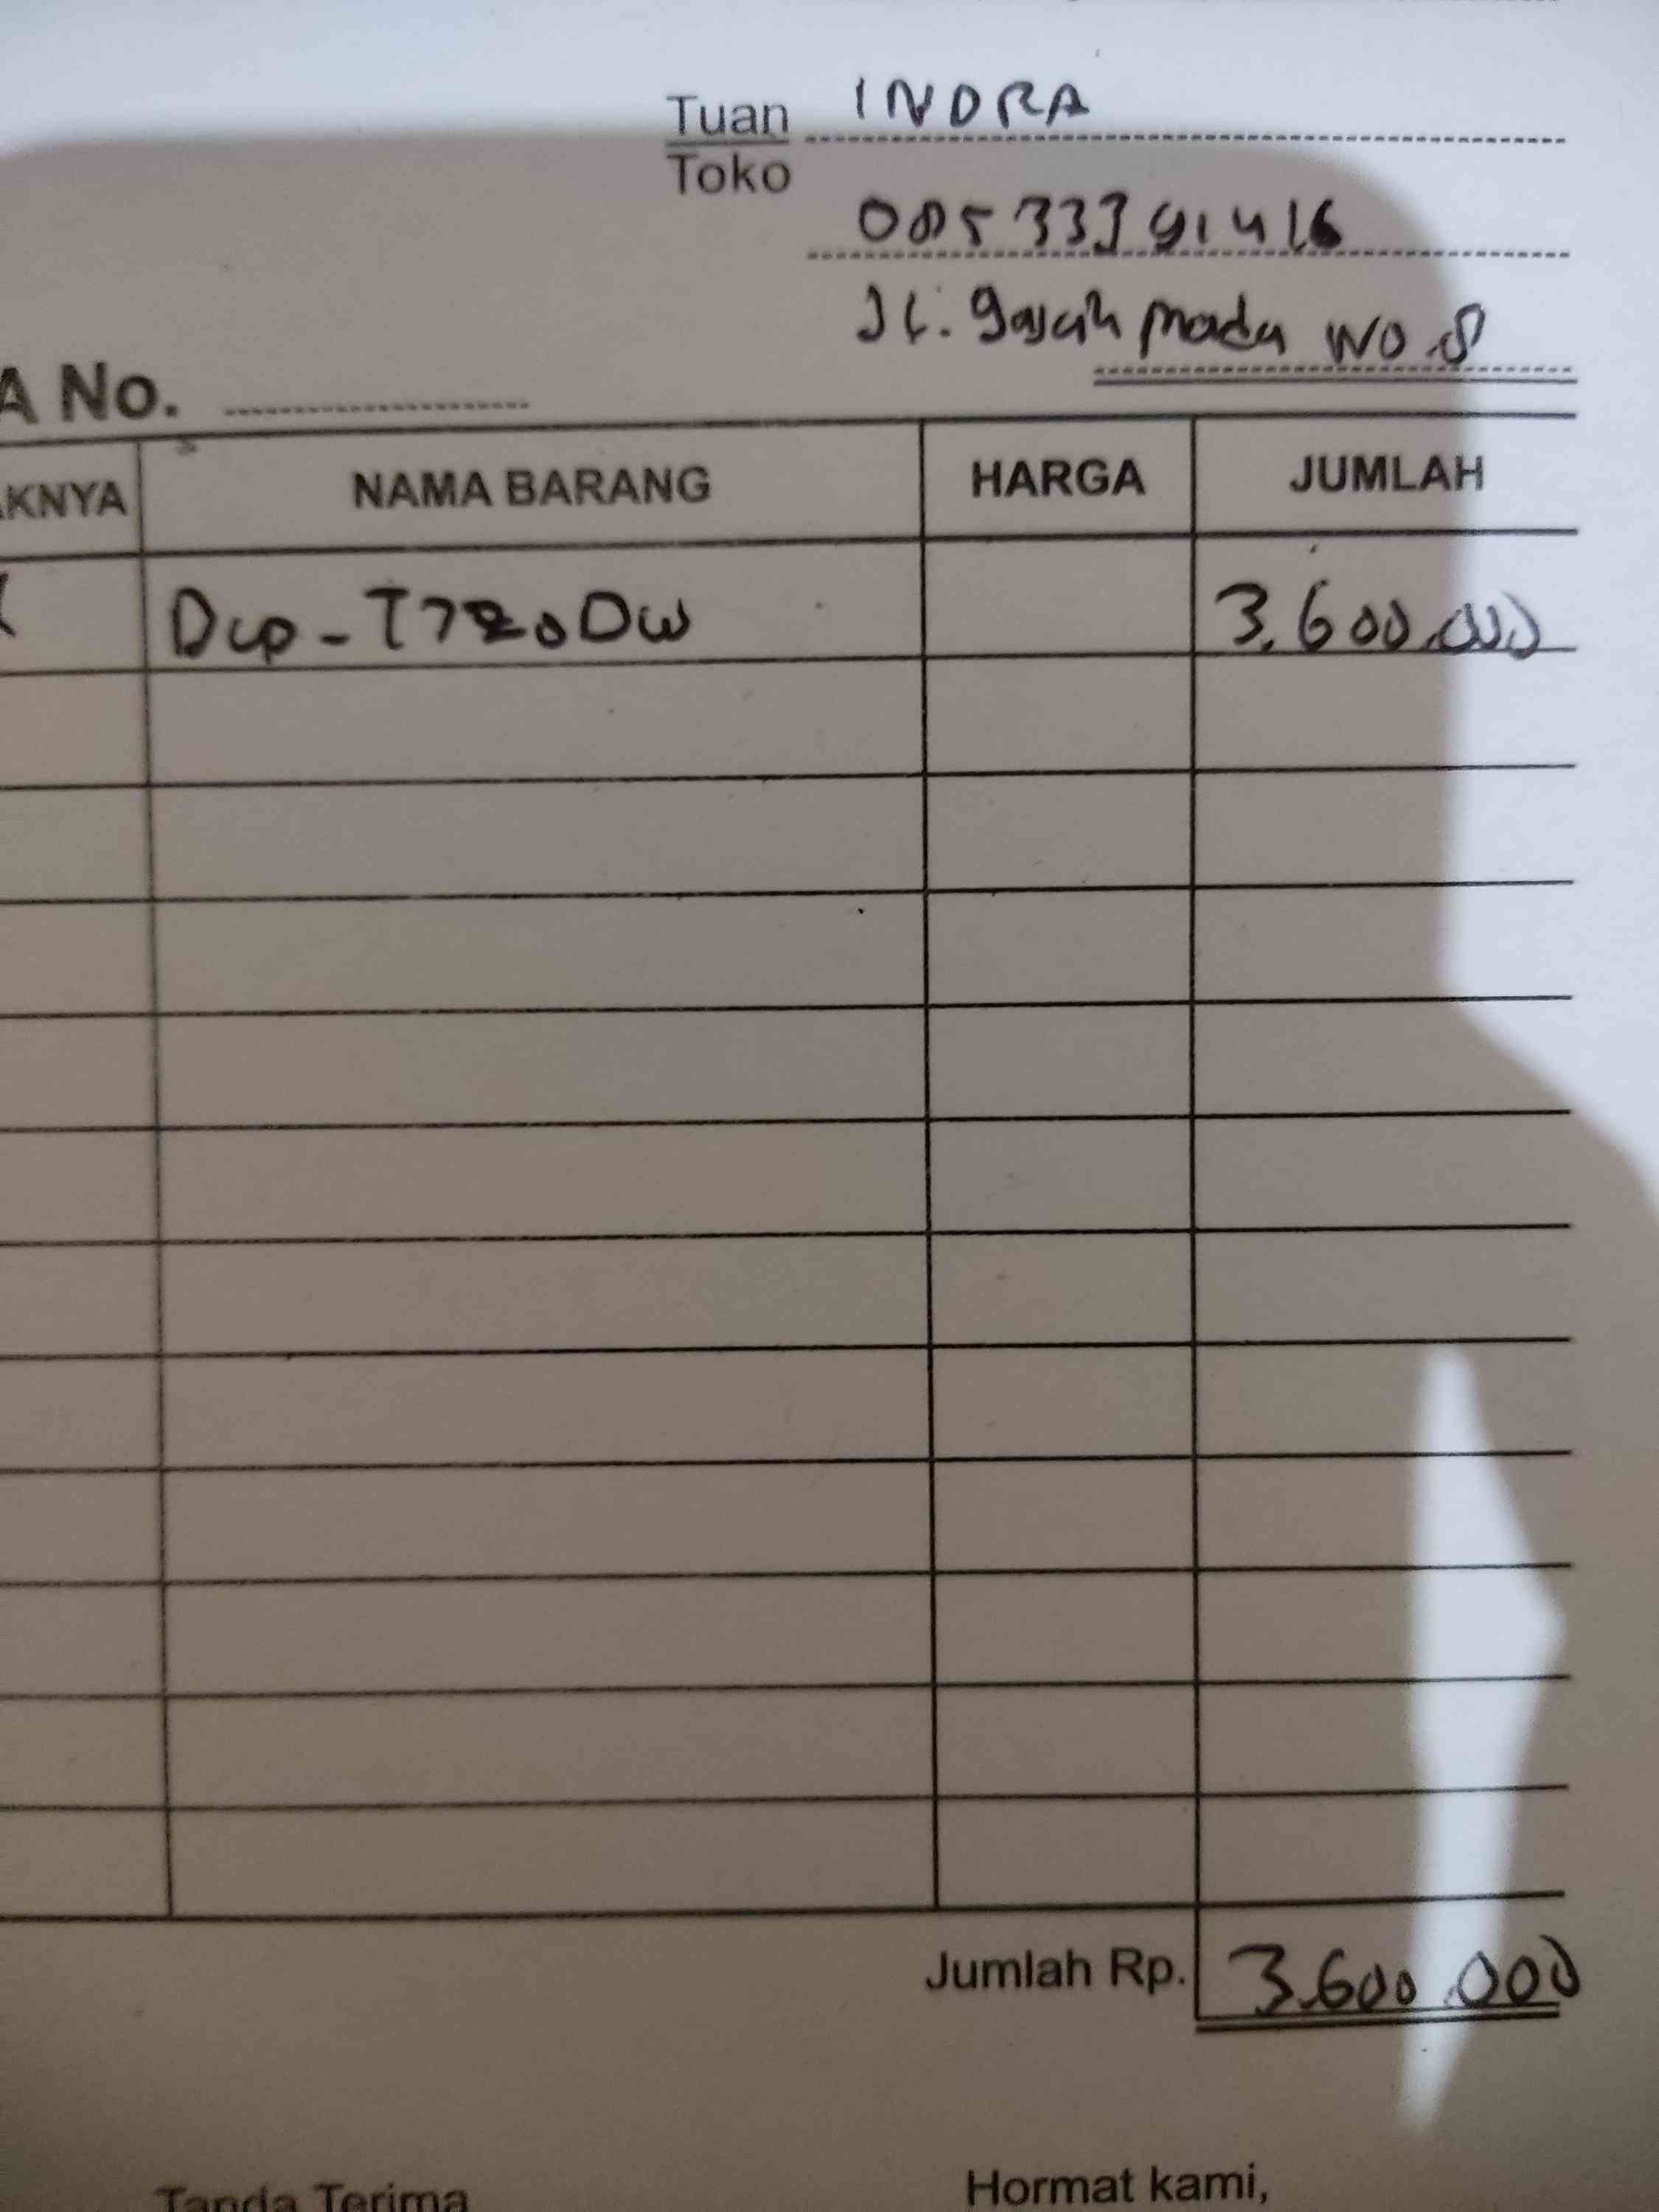 Tuan INDRA
Toko
085333391416
Jl. Gajah mada NO.8
A No.
AKNYA NAMA BARANG HARGA JUMLAH
Dcp-T720DW 3.600.000
Jumlah Rp. 3.600.000
Tanda Terima Hormat kami,